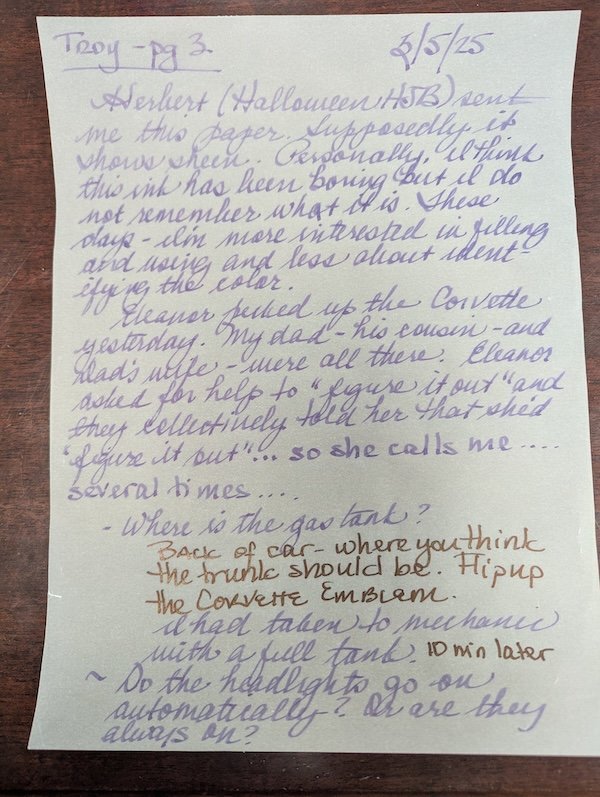 Troy - pg 3. 3/5/25
Herbert (Halloween HJB) sent
me this paper. Supposedly it
shows sheen. Personally, I think
this ink has been boring but I do
not remember what it is. These
days - I'm more interested in filling
and using and less about ident-
ifying the color.
Eleanor picked up the Corvette
yesterday. My dad - his cousin - and
dad's wife - were all there. Eleanor
asked for help to "figure it out" and
they collectively told her that she'd
"figure it out"... so she calls me ....
several times ....
- Where is the gas tank?
Back of car - where you think
the trunk should be. Flip up
the Corvette Emblem.
I had taken to mechanic
with a full tank. 10 min later
~ Do the headlights go on
automatically? Or are they
always on?